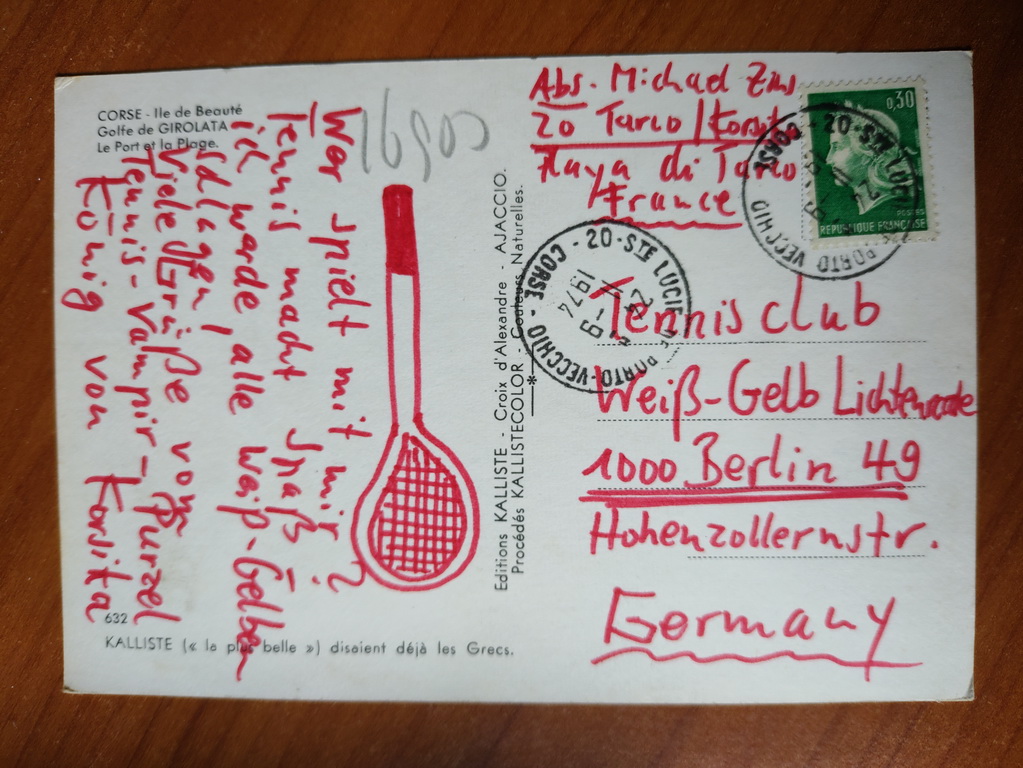 CORSE - Ile de Beauté
Golfe de GIROLATA
Le Port et la Plage.
Wer spielt mit mir?
Tennis macht Spaß
ich werde alle Weiß-Gelben
schlagen!
Viele Grüße vom
Tennis-Vampir-Purzel
König von Korsika
632
KALLISTE (« la plus belle ») disaient déjà les Grecs.
Editions KALLISTE - Croix d'Alexandre - AJACCIO.
Procédés KALLISTECOLOR - Couleurs Naturelles.
Abs. Michael
20 Tarco / Korsika
Playa di Tarco
/France
0,30
POSTES
REPUBLIQUE FRANÇAISE
20-STE LUCIE DE PORTO-VECCHIO - CORSE
24 -9
1974
20-STE LUCIE DE PORTO VECCHIO
CORSE
Tennisclub
Weiß-Gelb Lichtenrade
1000 Berlin 49
Hohenzollernstr.
Germany